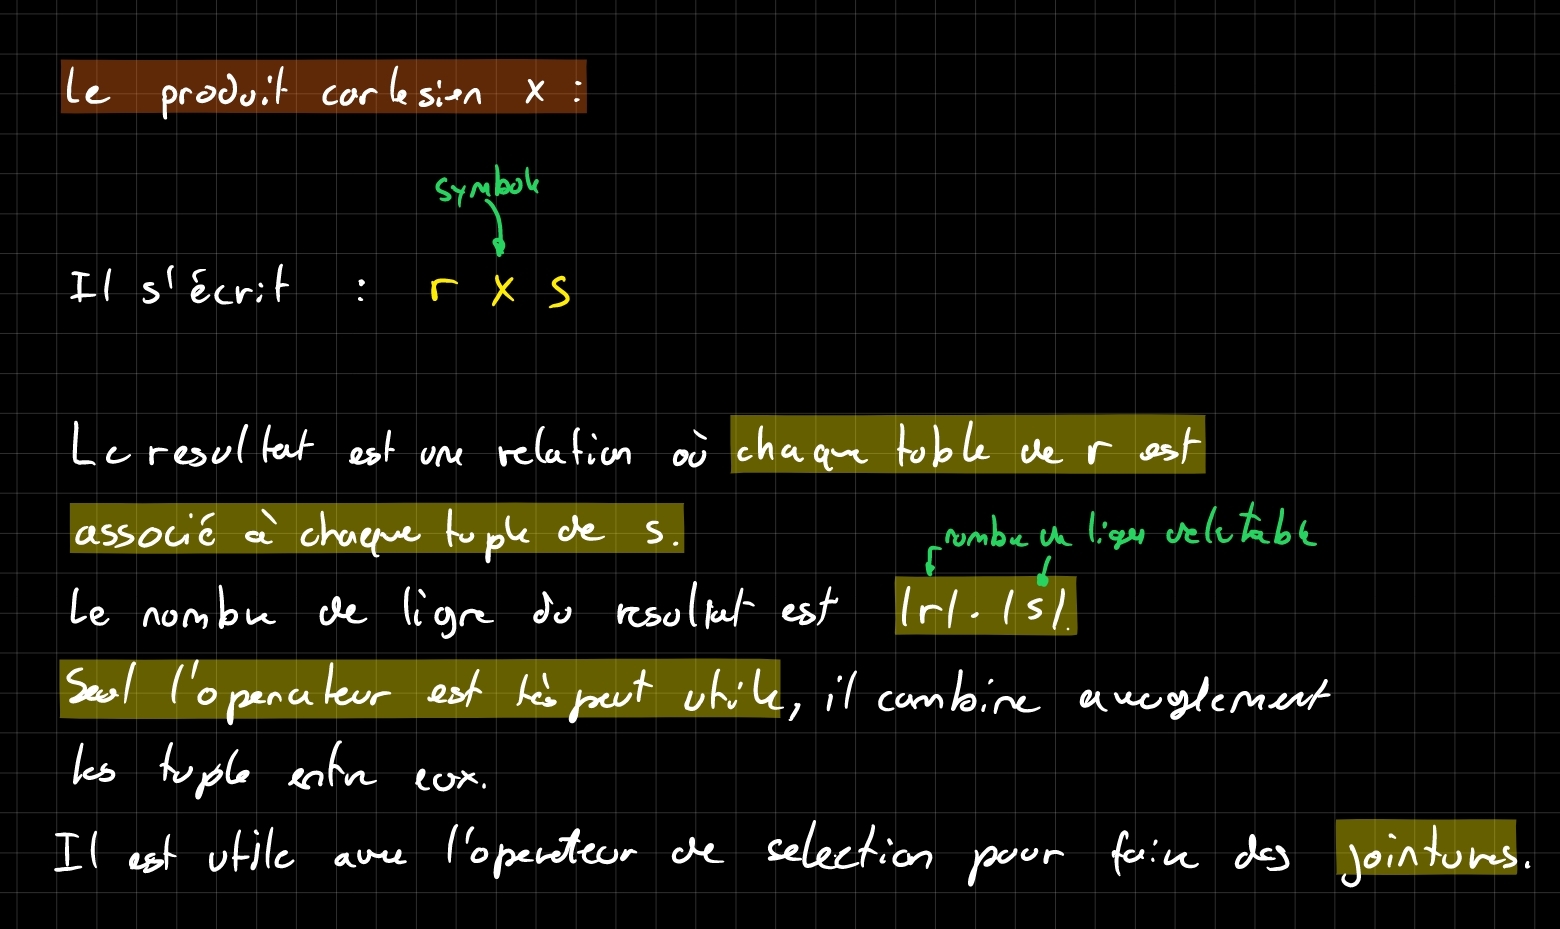 Le produit cartesien x :
symbole
Il s'écrit : r x s
Le resultat est une relation où chaque table de r est
associé à chaque tuple de s.
nombre de ligne de la table
Le nombre de ligne du resultat est |r| . |s|.
Seul l'operateur est très peut utile, il combine aveuglement
les tuple entre eux.
Il est utile avec l'operateur de selection pour faire des jointures.